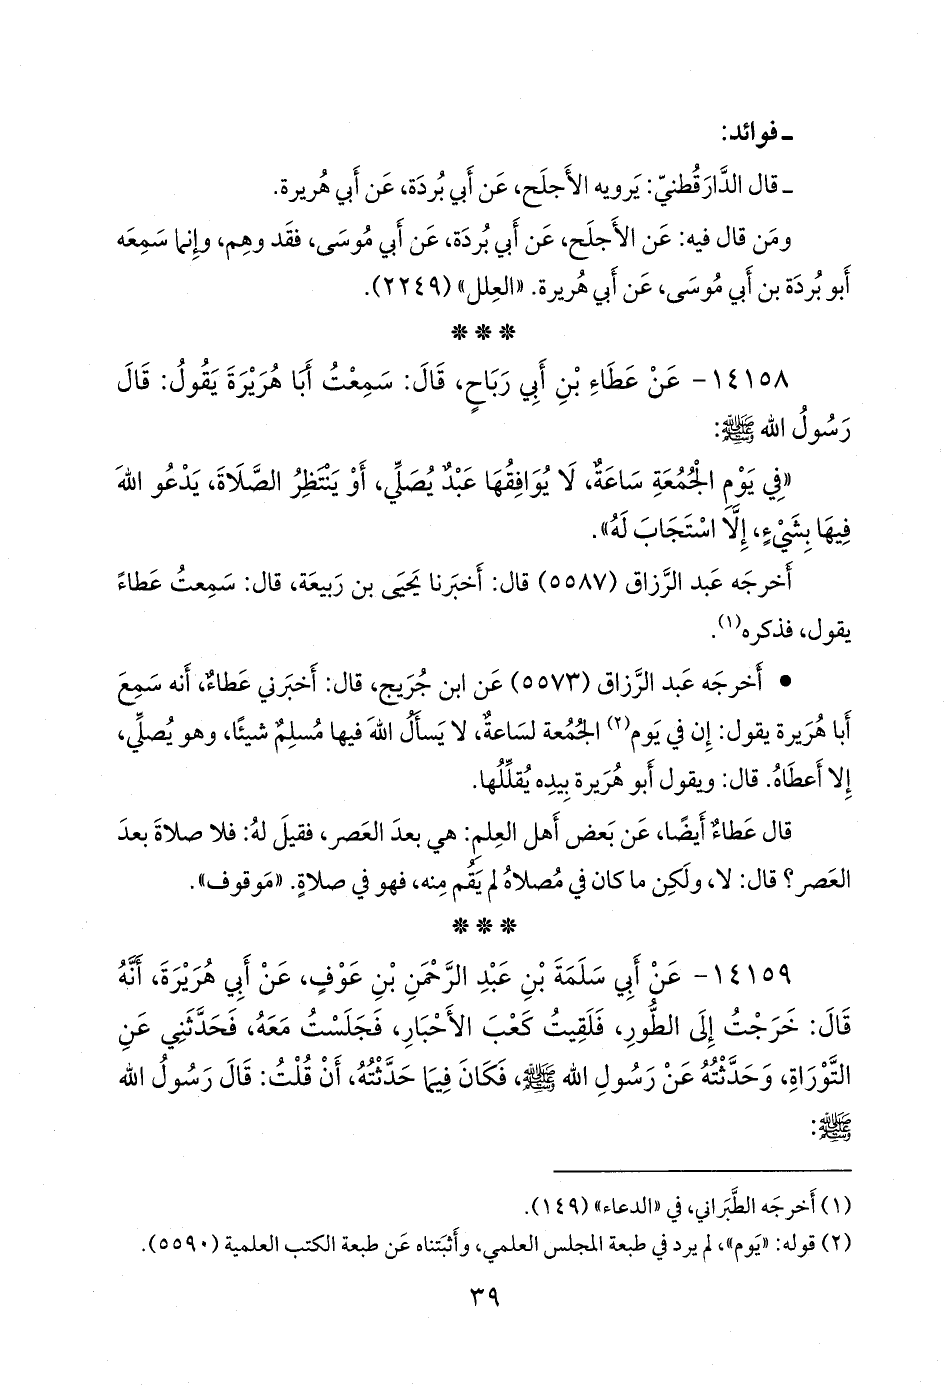 ـ فوائد:
ـ قال الدَّارَقُطنيّ: يَرويه الأَجلَح، عَن أَبي بُردَة، عَن أَبي هُريرة.
ومَن قال فيه: عَن الأَجلَح، عَن أَبي بُردَة، عَن أَبي مُوسَى، فقَد وهِم، وإِنما سَمِعَه
أَبو بُردَة بن أَبي مُوسَى، عَن أَبي هُريرة. «العِلل» (٢٢٤٩).
* * *
١٤١٥٨ - عَنْ عَطَاءِ بْنِ أَبِي رَبَاحٍ، قَالَ: سَمِعْتُ أَبَا هُرَيْرَةَ يَقُولُ: قَالَ
رَسُولُ الله ﷺ:
«فِي يَوْمِ الْجُمُعَةِ سَاعَةٌ، لَا يُوَافِقُهَا عَبْدٌ يُصَلِّي، أَوْ يَنْتَظِرُ الصَّلَاةَ، يَدْعُو اللهَ
فِيهَا بِشَيْءٍ، إِلَّا اسْتَجَابَ لَهُ».
أَخرجَه عَبد الرَّزاق (٥٥٨٧) قال: أَخبَرنا يَحيَى بن رَبيعَة، قال: سَمِعتُ عَطاءً
يقول، فذكره(١).
• أَخرجَه عَبد الرَّزاق (٥٥٧٣) عَن ابن جُرَيج، قال: أَخبَرني عَطاءٌ، أَنه سَمِعَ
أَبا هُرَيرة يقول: إِن في يَوم(٢) الجُمُعة لسَاعةٌ، لا يَسأَلُ اللهَ فيها مُسلِمٌ شيئًا، وهو يُصلِّي،
إِلا أَعطَاهُ. قال: ويقول أَبو هُرَيرة بِيدِه يُقلِّلُها.
قال عَطاءٌ أَيضًا، عَن بَعض أَهل العِلمِ: هي بعدَ العَصر، فقيلَ لهُ: فلا صلاةَ بعدَ
العَصر؟ قال: لا، ولَكِن ما كان في مُصلاهُ لم يَقُم مِنه، فهو في صلاةٍ. «مَوقوف».
* * *
١٤١٥٩ - عَنْ أَبِي سَلَمَةَ بْنِ عَبْدِ الرَّحْمَنِ بْنِ عَوْفٍ، عَنْ أَبِي هُرَيْرَةَ، أَنَّهُ
قَالَ: خَرَجْتُ إِلَى الطُّورِ، فَلَقِيتُ كَعْبَ الأَحْبَارِ، فَجَلَسْتُ مَعَهُ، فَحَدَّثَنِي عَنِ
التَّوْرَاةِ، وَحَدَّثْتُهُ عَنْ رَسُولِ الله ﷺ، فَكَانَ فِيمَا حَدَّثْتُهُ، أَنْ قُلْتُ: قَالَ رَسُولُ الله
ﷺ:
(١) أَخرجَه الطَّبَراني، في «الدعاء» (١٤٩).
(٢) قوله: «يَوم»، لم يرد في طبعة المجلس العلمي، وأَثبَتناه عَن طبعة الكتب العلمية (٥٥٩٠).
٣٩